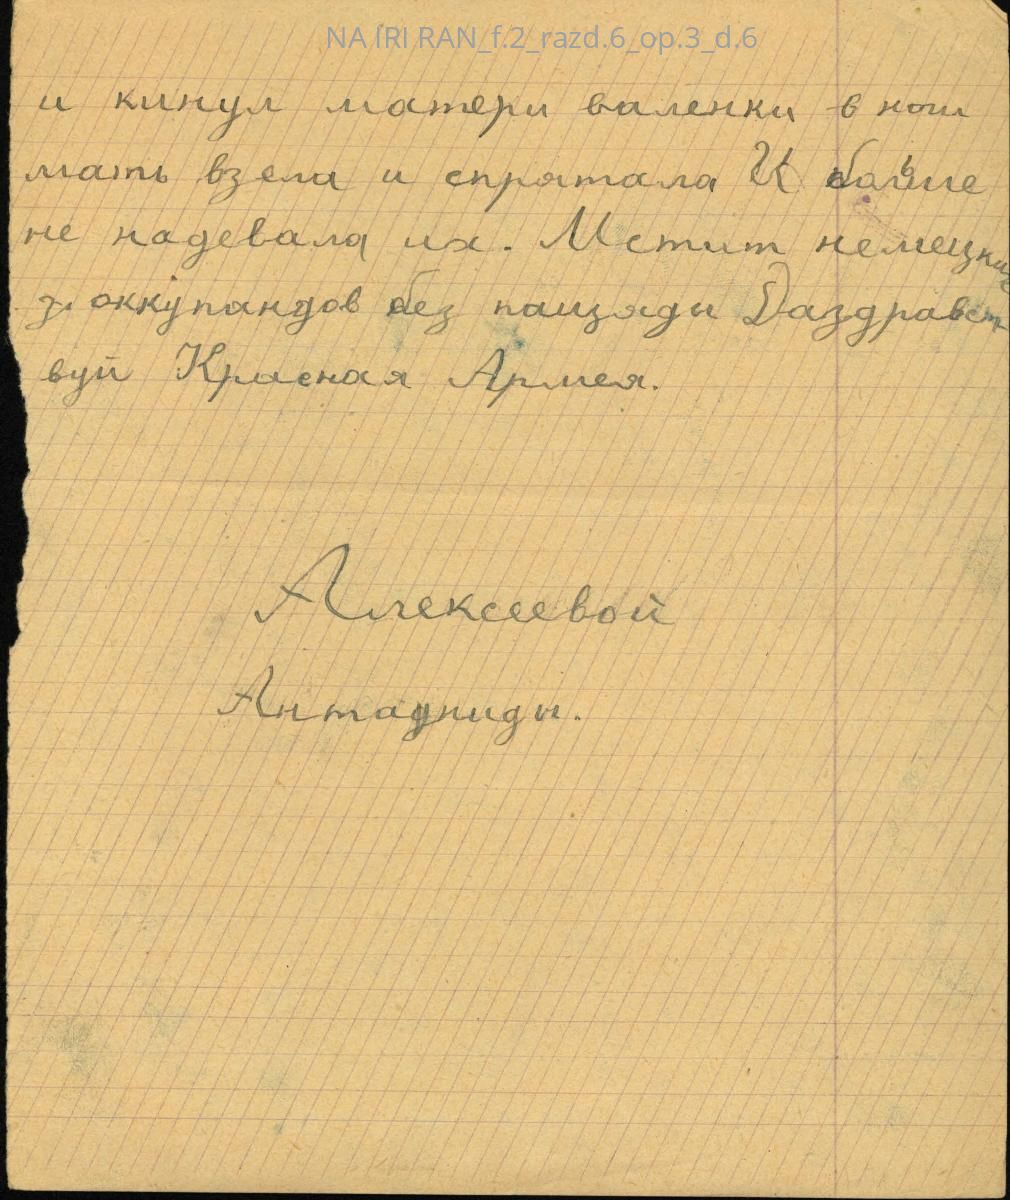 NA IRI RAN_f.2_razd.6_op.3_d.6
и кинул матери валенки в ноги
мать взела и спрятала И больше
не надевала их. Мстит немецких
оккупандов без пащяды Даздравст-
вуй Красная Армея.
Алексеевой